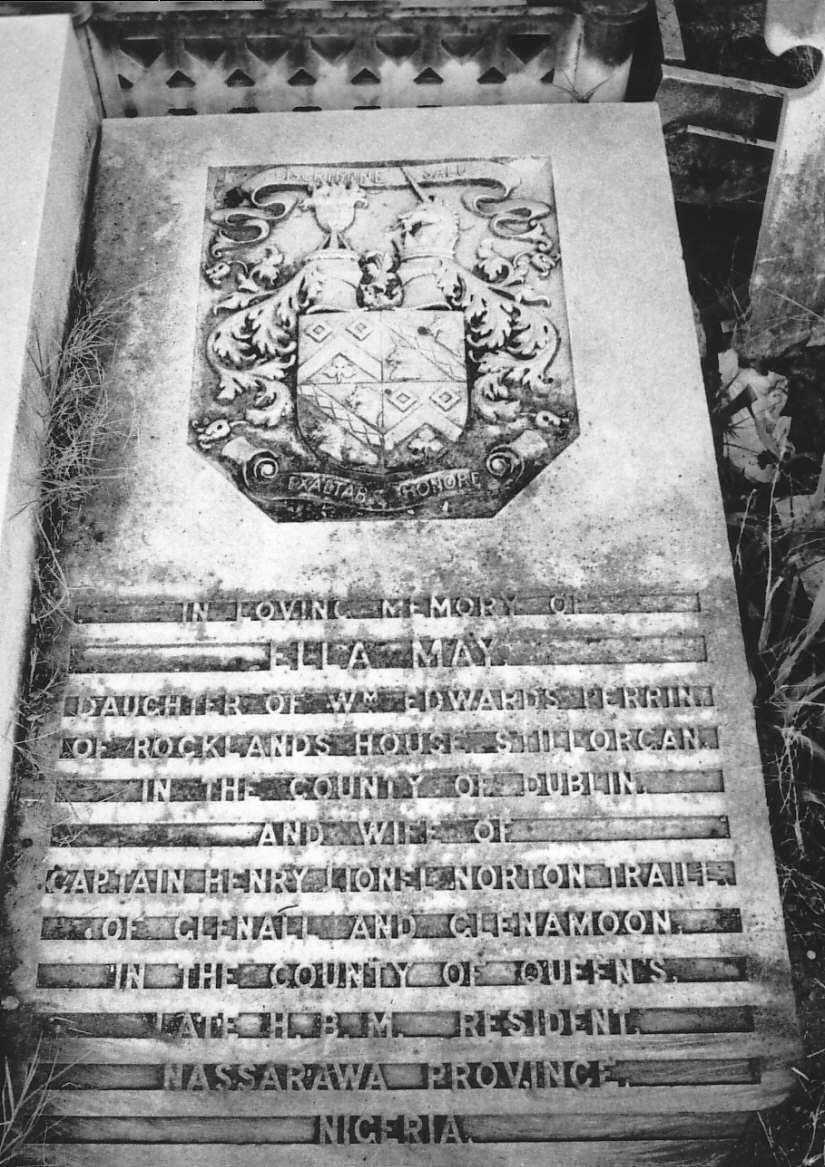 DISCRIMINE SALUS
EXALTAT HONORE
IN LOVING MEMORY OF
ELLA MAY.
DAUGHTER OF WM EDWARDS PERRIN.
OF ROCKLANDS HOUSE. STILLORGAN.
IN THE COUNTY OF DUBLIN.
AND WIFE OF
CAPTAIN HENRY LIONEL NORTON TRAILL.
OF GLENALL AND GLENAMOON.
IN THE COUNTY OF QUEEN'S.
LATE H.B.M. RESIDENT.
NASSARAWA PROVINCE.
NIGERIA.